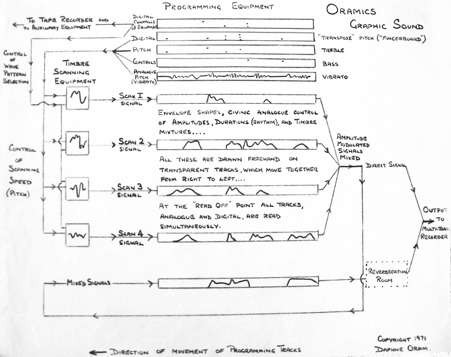 Programming Equipment
Oramics
Graphic Sound
To Tape Recorder and
to Auxiliary Equipment
Digital
Controls
Digital
"Transpose" Pitch ("Fingerboard")
Pitch
Treble
Controls
Bass
Analogue
Pitch
(Vibrato)
Vibrato
Control
of Wave
Pattern
Selection
Timbre
Scanning
Equipment
Scan 1
Signal
Envelope shapes, giving analogue control
of amplitudes, durations (rhythm), and timbre
mixtures....
Scan 2
Signal
All these are drawn freehand on
transparent tracks, which move together
from right to left....
Scan 3
Signal
At the "read off" point all tracks,
analogue and digital, are read
simultaneously.
Scan 4
Signal
Control
of
Scanning
Speed
(Pitch)
Amplitude
Modulated
Signals
Mixed
Direct Signal
Output
to
Multi-Track
Recorder
Mixed Signals
Reverberation
Room
Direction of Movement of Programming Tracks
Copyright 1971
Daphne Oram.